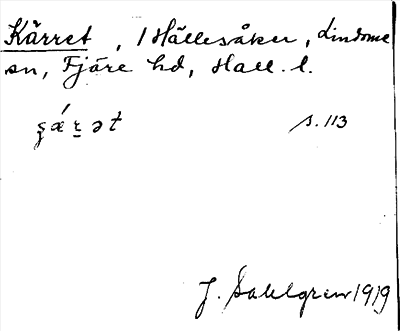 Kärret, 1 Hällesåker, Lindome
sn, Fjäre hd, Hall. l.
s. 113
J. Sahlgren 1919